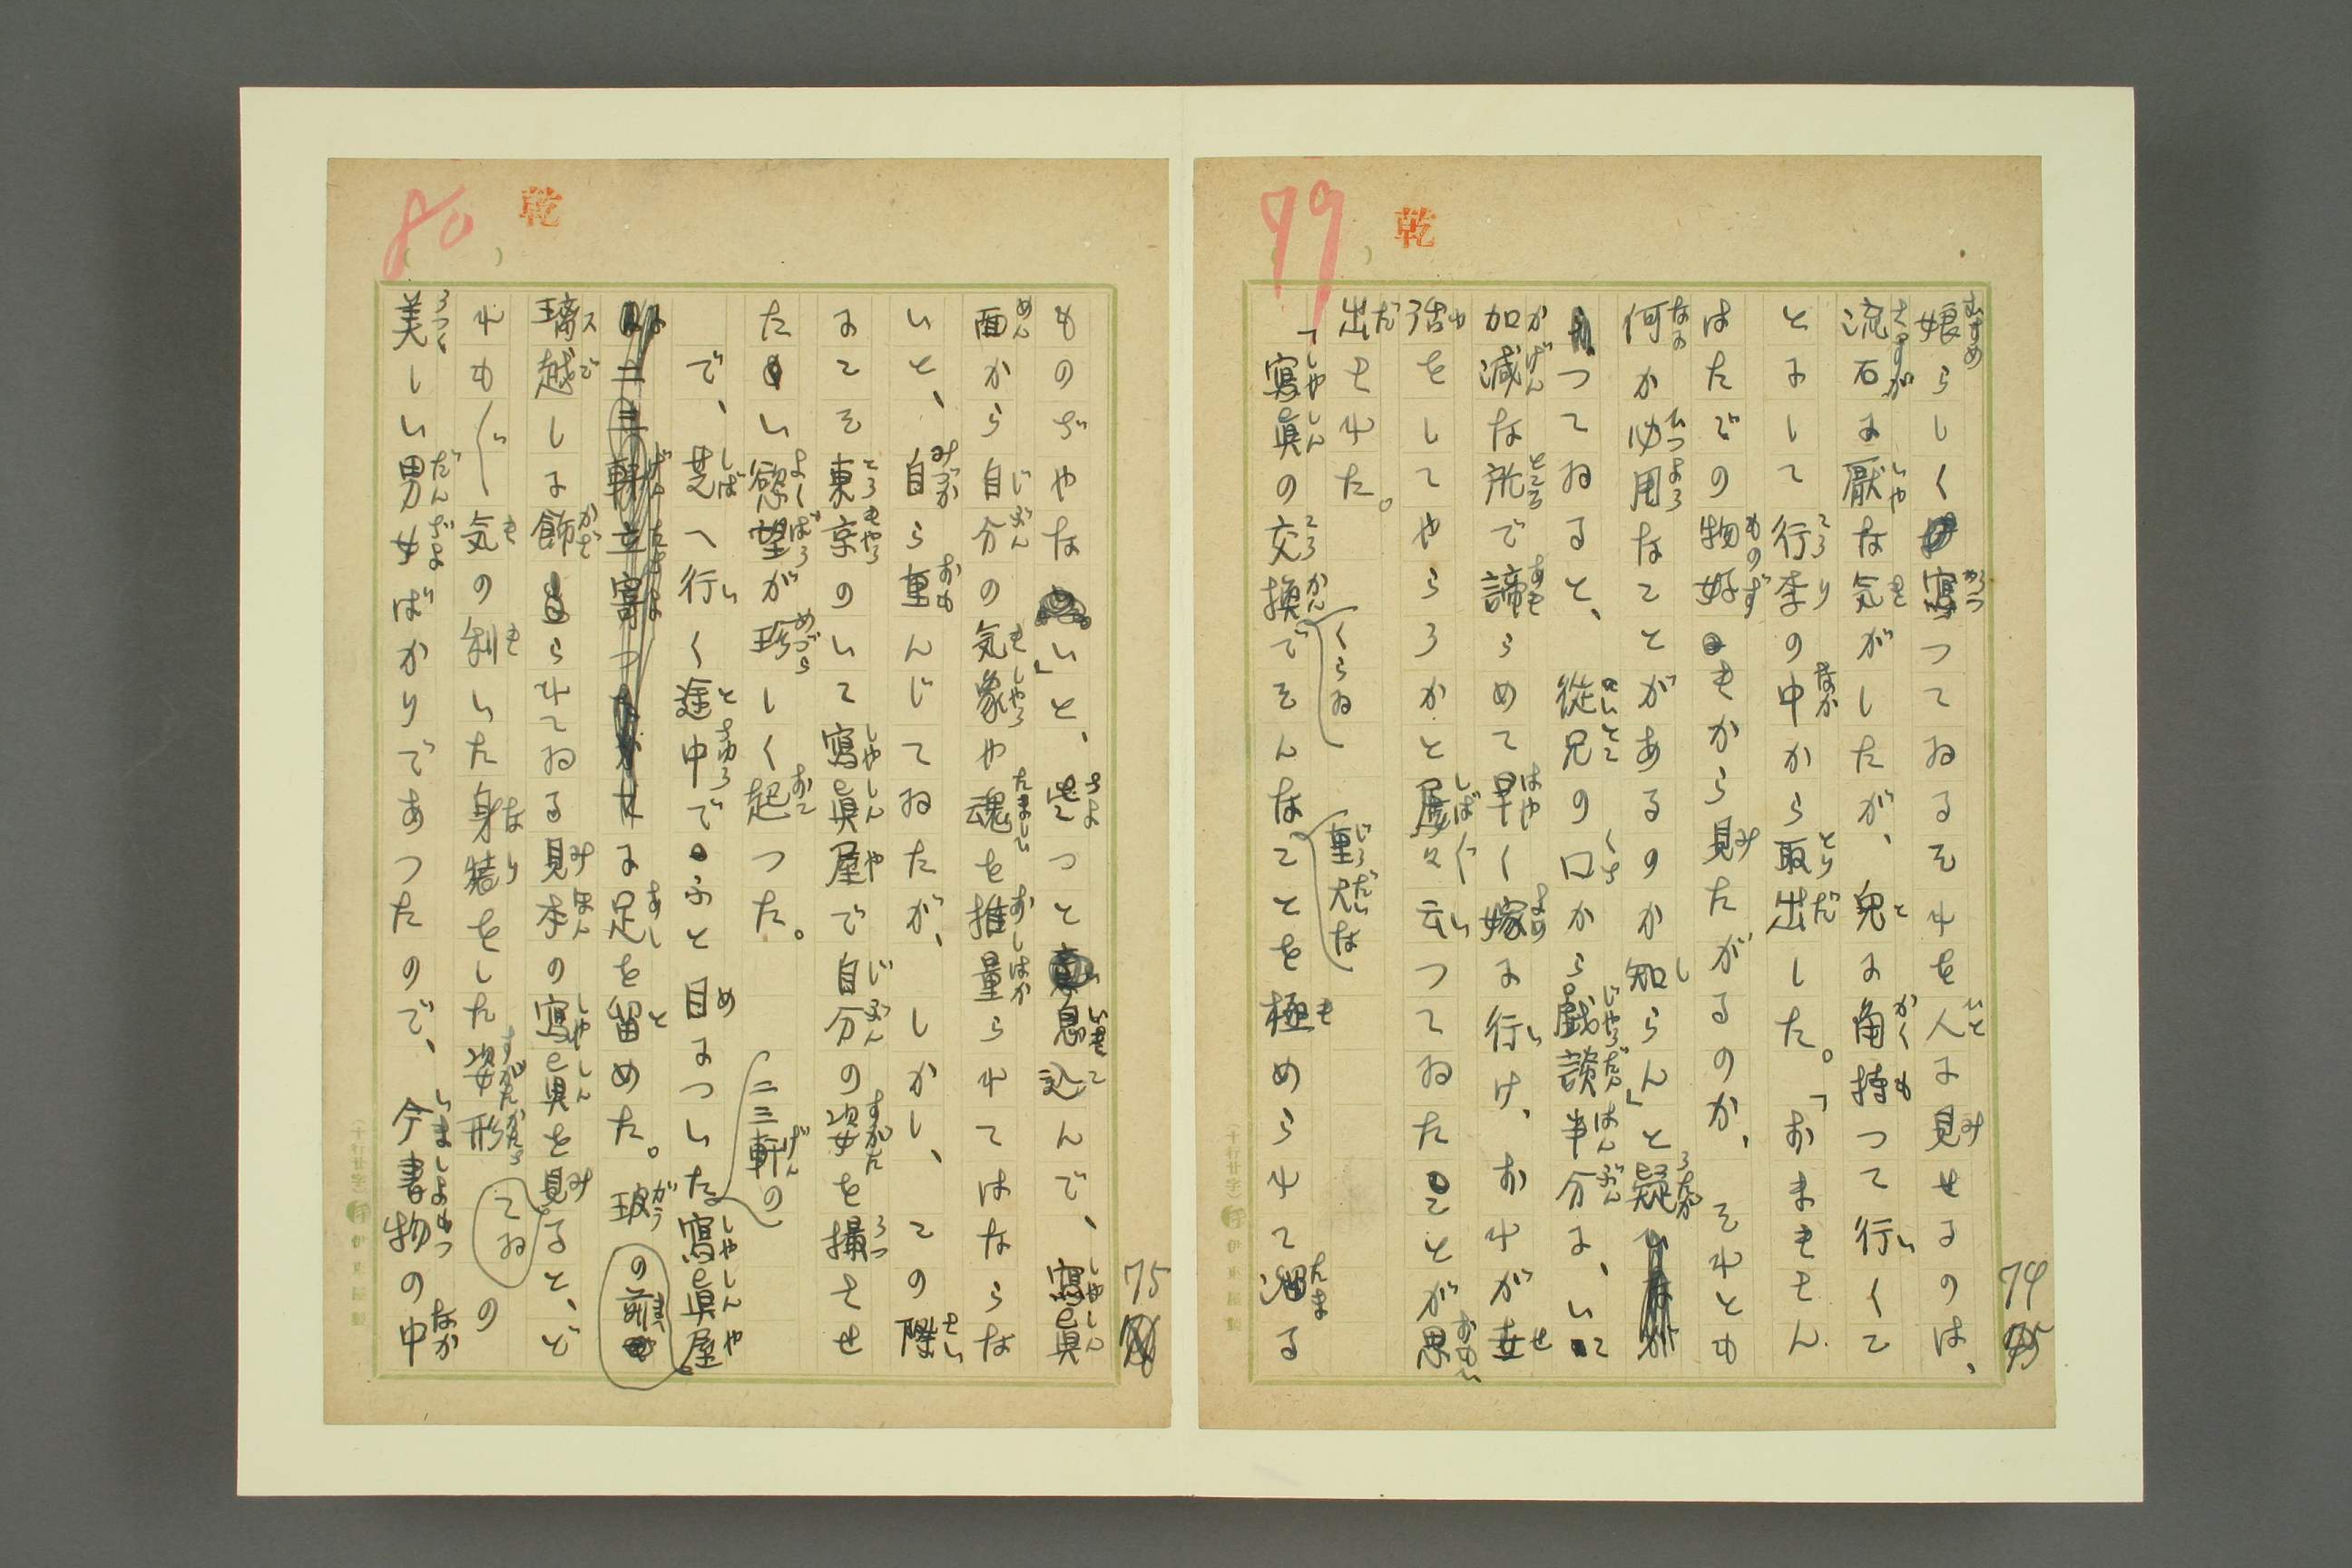 74
79
乾
娘らしく寫つてゐるそれを人に見せるのは、
流石に厭な気がしたが、兎に角持つて行くこ
とにして行李の中から取出した。「おまきさん
はたでの物好きから見たがるのか、それとも
何か必用なことがあるのか知らん」と疑
つてゐると、從兄の口から戯談半分に、いゝ
加減な所で諦らめて早く嫁に行け、おれが世
話をしてやらうかと屡々云つてゐたことが思
出された。
「寫眞の交換くらゐでそんな重大なことを極められて溜る
75
80
乾
ものぢやない」と、ちよつと息込んで、寫眞
面から自分の気象や魂を推量られてはならな
いと、自ら重んじてゐたが、しかし、この際
にこそ東京のいゝ寫眞屋で自分の姿を撮させ
たい慾望が珍しく起つた。
で、芝へ行く途中でふと目についた二三軒の寫眞屋
の前に足を留めた。玻
璃越しに飾られてゐる見本の寫眞を見ると、ど
れも〳〵気の利いた身裝をした姿形のてゐ
美しい男女ばかりであつたので、今書物の中